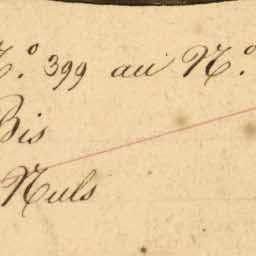 N.º 399 au N.º
Bis
Nuls